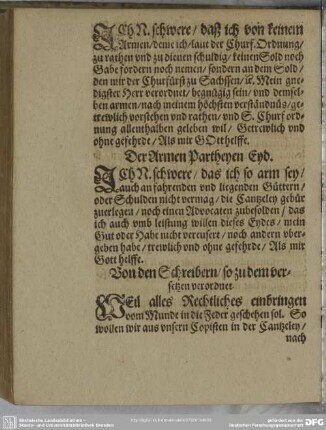 ICh N. schwere / daß ich von keinem
Armen / deme ich / laut der Churf. Ordnung /
zu rathen vnd zu dienen schuldig / keinen Sold noch
Gabe fordern noch nemen / sondern an dem Sold /
den mir der Churfürst zu Sachssen / ꝛc. Mein gne-
digster Herr verordnet / begnügig sein / vnd demsel-
ben armen / nach meinem höchsten verständnüs / ge-
trewlich vorstehen vnd rathen / vnd S. Churf. ord-
nung allenthalben geleben wil / Getrewlich vnd
ohne gefehrde / Als mir GOtt helffe.
Der Armen Partheyen Eyd.
ICh N. schwere / das ich so arm sey /
auch an fahrenden vnd liegenden Güttern /
oder Schulden nicht vermag / die Cantzeley gebür
zuerlegen / noch einen Advocaten zubesolden / das
ich auch vmb leistung willen dieses Eydes / mein
Gut oder Habe nicht vereusert / noch andern vber-
geben habe / trewlich vnd ohne gefehrde / Als mir
Gott helffe.
Von den Schreibern / so zu dem ver-
setzen verordnet
WEil alles Rechtliches einbringen
vom Munde in die Feder geschehen sol. So
wollen wir aus vnsern Copisten in der Cantzeley /
nach